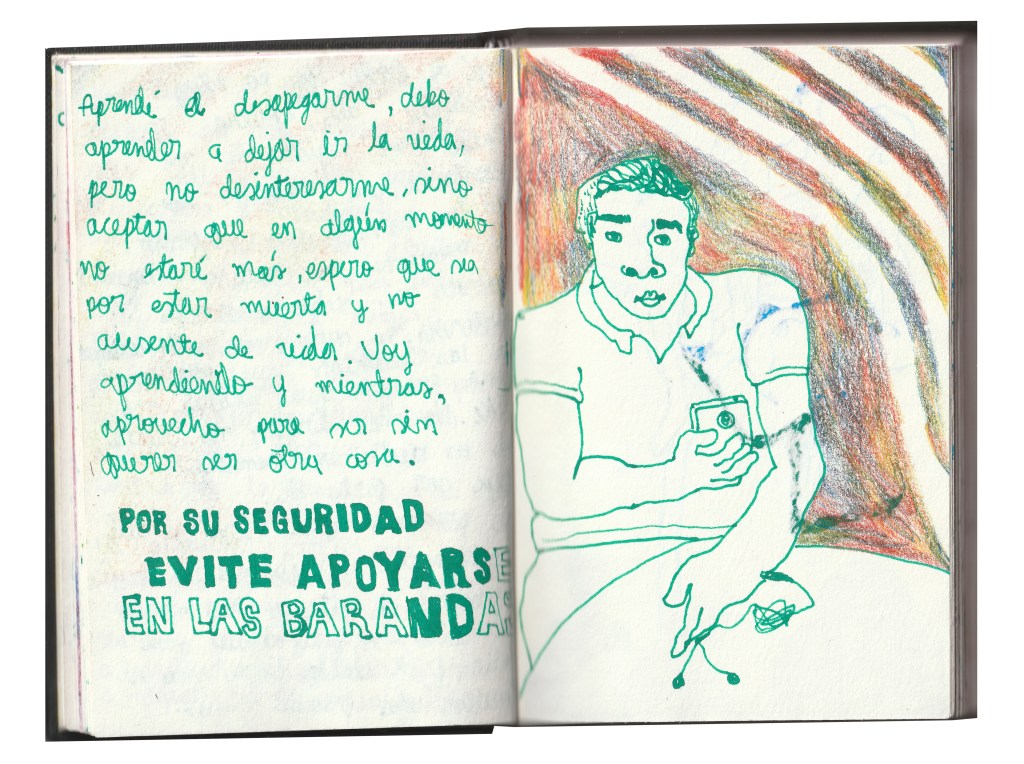 Aprendí a desapegarme, debo
aprender a dejar ir la vida,
pero no desinteresarme, sino
aceptar que en algún momento
no estaré más, espero que sea
por estar muerta y no
ausente de vida. Voy
aprendiendo y mientras,
aprovecho para ser sin
querer ser otra cosa.
POR SU SEGURIDAD
EVITE APOYARSE
EN LAS BARANDAS